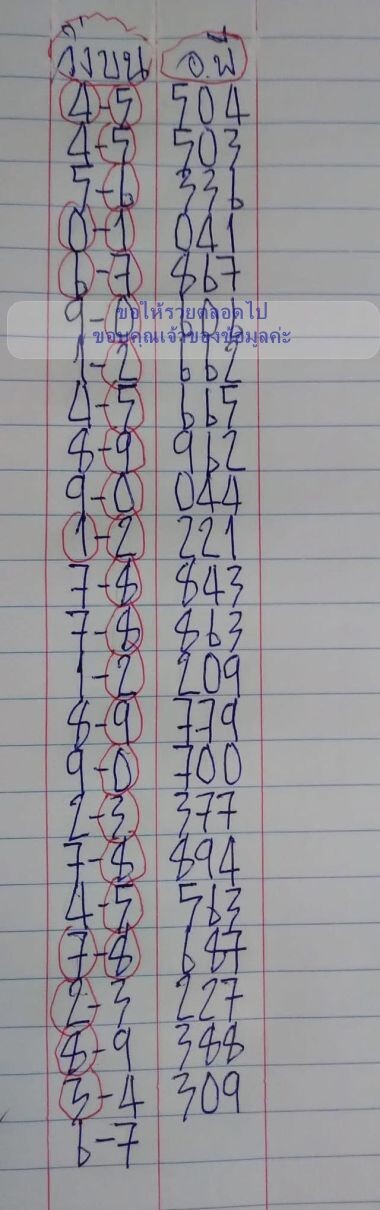 วิ่งบน อ.พี่
4-5 504
4-5 503
5-6 336
0-1 041
6-7 867
ขอให้รวยตลอดไป
9-0 606
ขอบคุณเจ้าของข้อมูลค่ะ
1-2 662
4-5 665
8-9 962
9-0 044
1-2 221
7-8 843
7-8 863
1-2 209
8-9 779
9-0 700
2-3 377
7-8 894
4-5 563
7-8 687
2-3 227
8-9 388
3-4 309
6-7